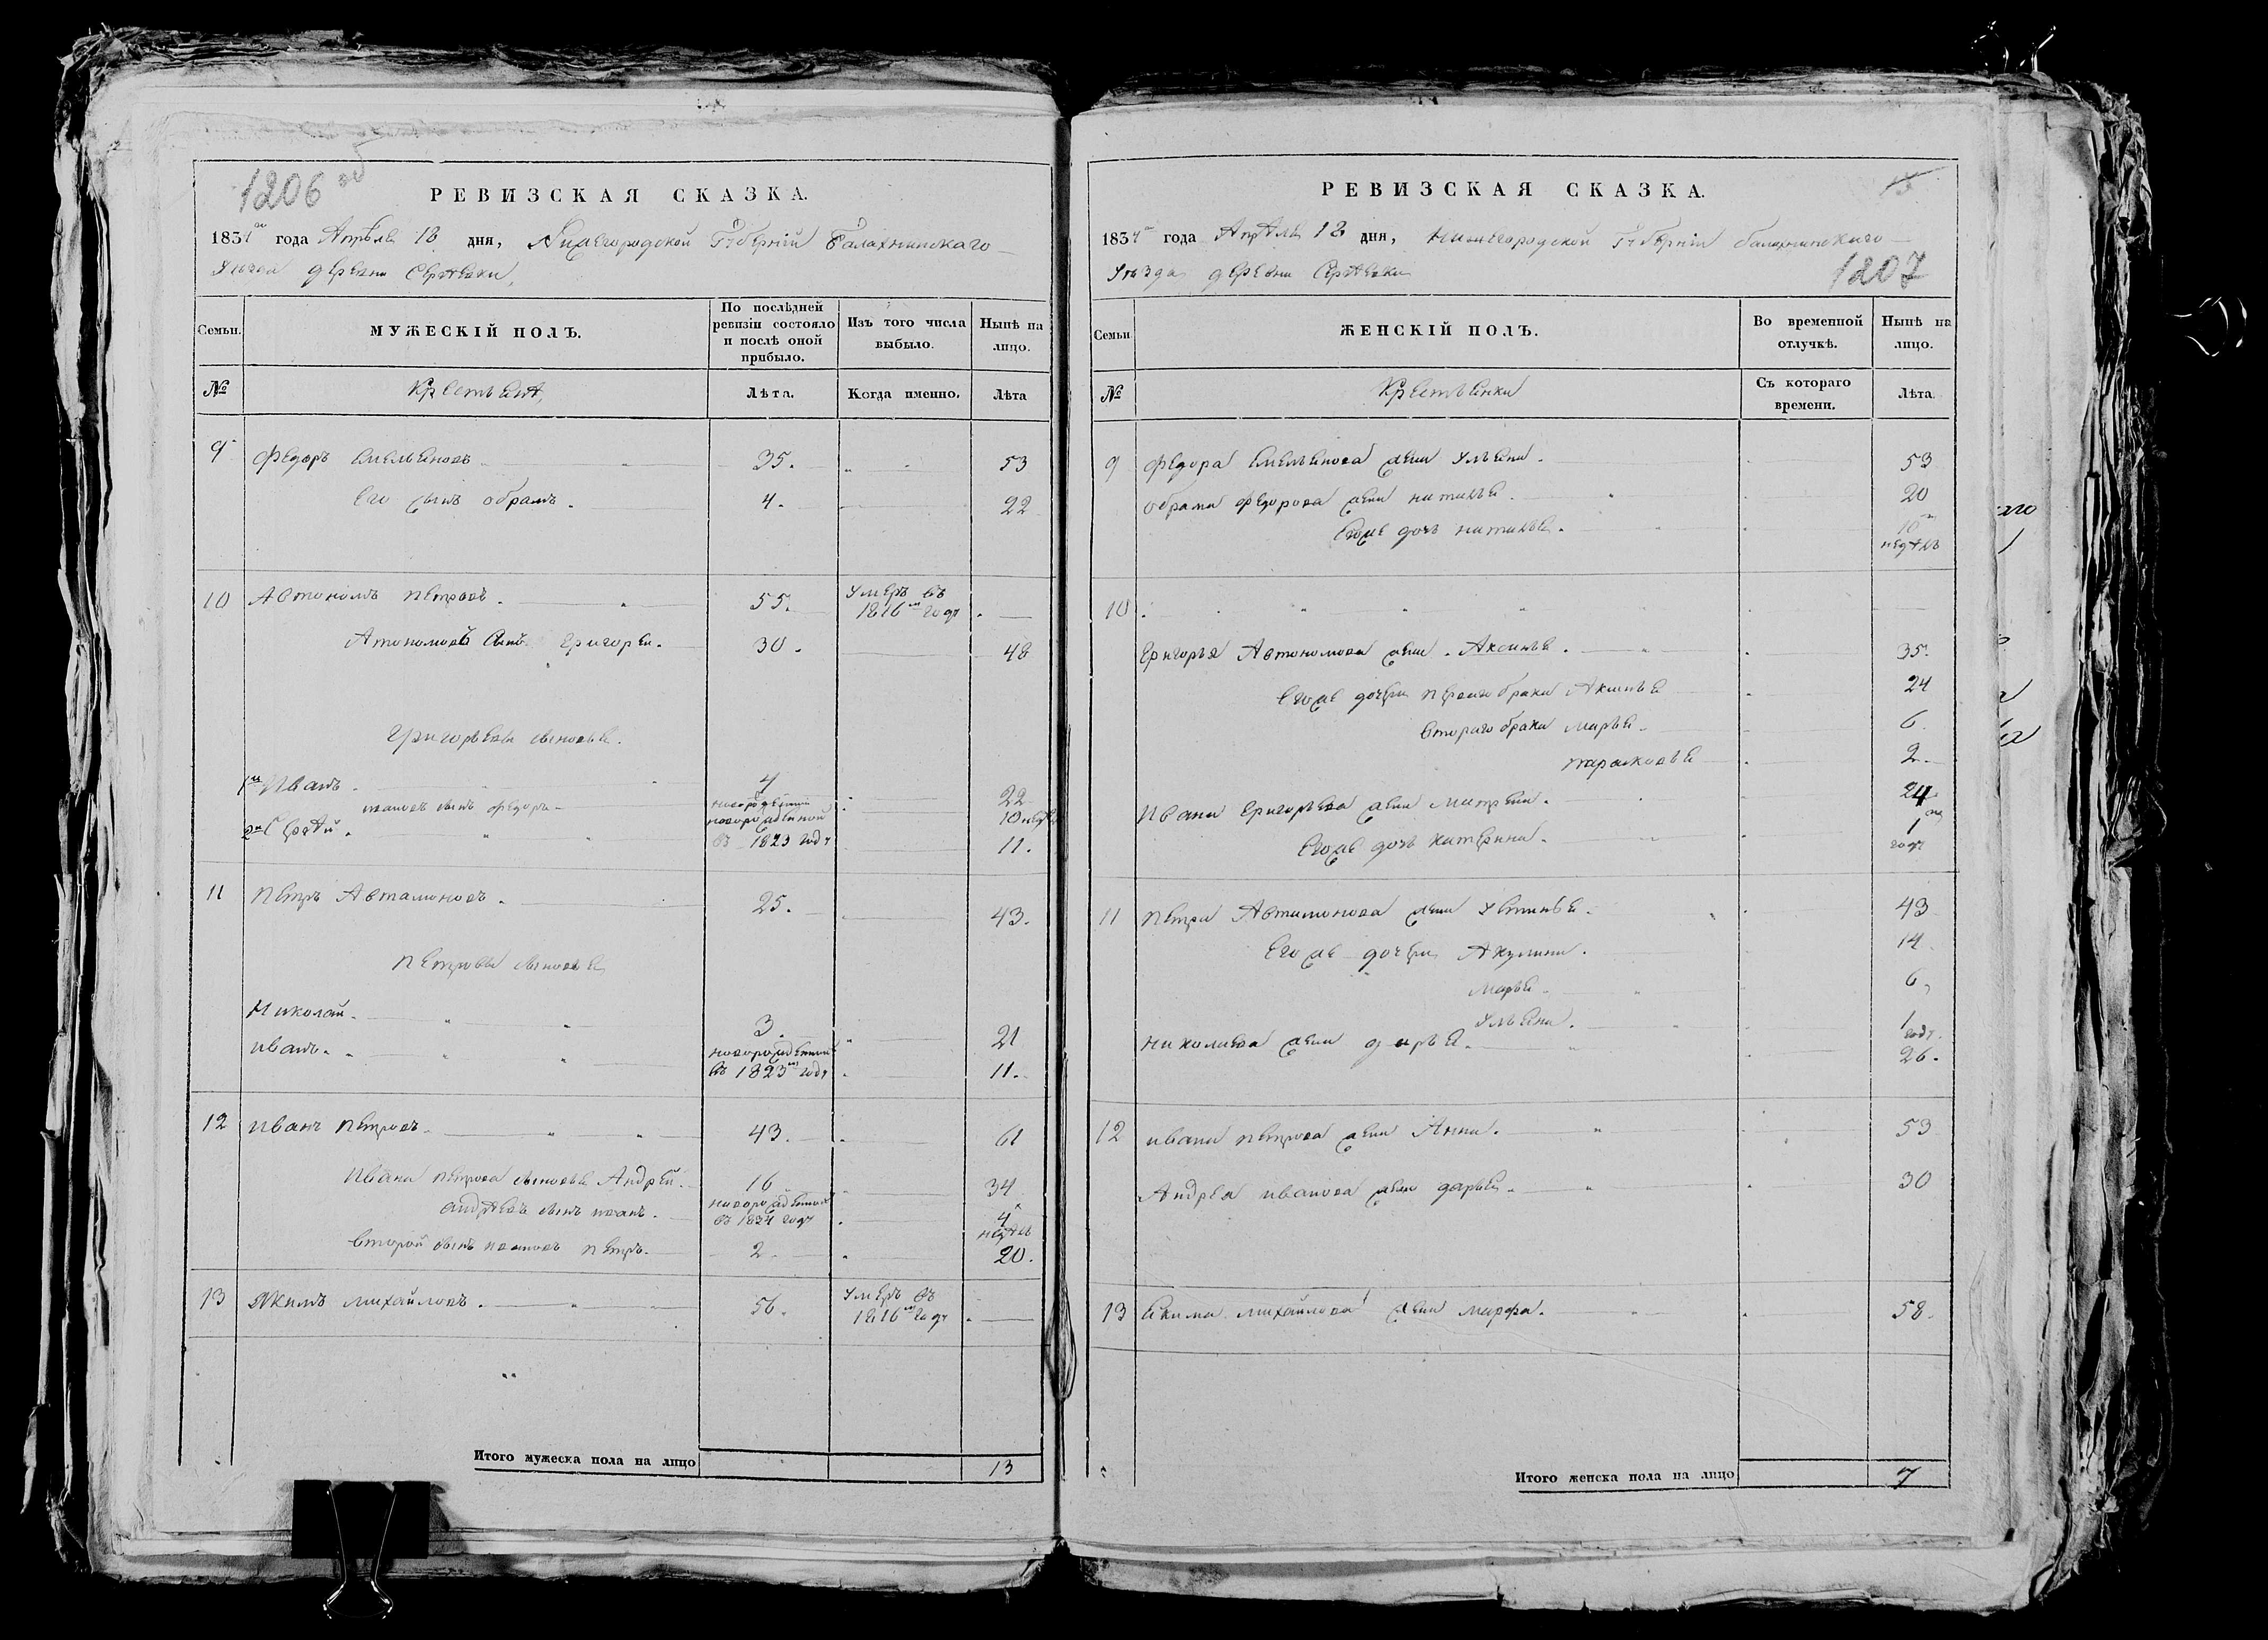 1206 об
РЕВИЗСКАЯ СКАЗКА.
1834го года Апреля 18 дня, Нижегородской Губернии Балахнинскаго
Уезда деревни
Семьи.
МУЖЕСКІЙ ПОЛЪ.
По послѣдней ревизіи состояло и послѣ оной прибыло.
Изъ того числа выбыло.
Нынѣ на лицо.
№
Крестьеня
Лѣта.
Когда именно.
Лѣта
9 Федоръ Емельеновъ 35. 53
Его сынъ обрамъ. 4. 22
10 Автономъ петровъ. 55. Умеръ въ 1816м году
Атономовъ сынъ Григореи. 30. 48
Григорьевы сыновье.
1й Иванъ 4 22
ивановъ сынъ федоръ новорожденный 10 недель
2й Сергѣй. новорожденой въ 1823 году 11.
11 Петръ Автамоновъ. 25. 43.
петровы сыновье
Николай. 3. 21
иванъ. новорожденный въ 1823м году 11.
12 иванъ петровъ. 43. 61
Ивана петрова сыновье Андрей. 16 34
андрѣевъ сынъ иванъ. новорожденный въ 1834 году 4 недѣль
второй сынъ ивановъ петръ. 2. 20.
13 Якимъ михайловъ. 56. Умеръ въ 1816м году
Итого мужеска пола на лицо 13
РЕВИЗСКАЯ СКАЗКА.
1834го года Апрѣля 18 дня, Нижегородской Губерніи балахнинскаго
Уезда деревни
1207
Семьи
ЖЕНСКІЙ ПОЛЪ.
Во временной отлучкѣ.
Нынѣ на лицо.
№
Крестьенки
Съ котораго времени.
Лѣта.
9 федора емельенова жена Ульена. 53
обрама федорова жена наталье. 20
Егоже дочь наталье. 10 недѣль
10
Григорья Автономова жена Аксинье. 35.
Егоже дочери перваго брака Акинье 24
втораго брака марье. 6.
парасковье 2.
Ивана Григорьева жена матрена. 24
Егоже дочь катерина. 1 году
11 петра Автамонова жена Устинье. 43
Егоже дочери Акулина. 14.
марье. 6,
Ульена. 1 году.
николаева жена дарье. 26.
12 ивана петрова жена Анна. 53
Андрея иванова жена дарье. 30
13 Екима михайлова жена марфа. 58.
Итого женска пола на лицо 7